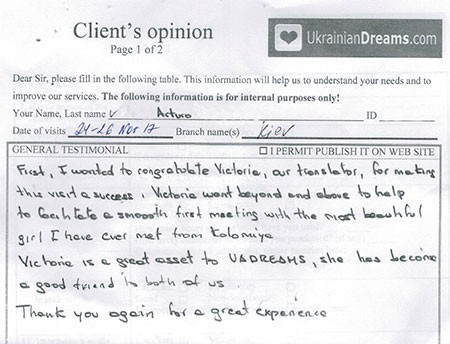 Client's opinion
Page 1 of 2
UkrainianDreams.com
Dear Sir, please fill in the following table. This information will help us to understand your needs and to
improve our services. The following information is for internal purposes only!
Your Name, Last name V Arturo ID
Date of visits 24-26 Nov 17 Branch name(s) Kiev
GENERAL TESTIMONIAL ☐ I PERMIT PUBLISH IT ON WEB SITE
First, I wanted to congratulate Victoria, our translator, for making
this visit a success. Victoria went beyond and above to help
to facilitate a smooth first meeting with the most beautiful
girl I have ever met from Kolomiya
Victoria is a great asset to UADREAMS, she has become
a good friend to both of us.
Thank you again for a great experience